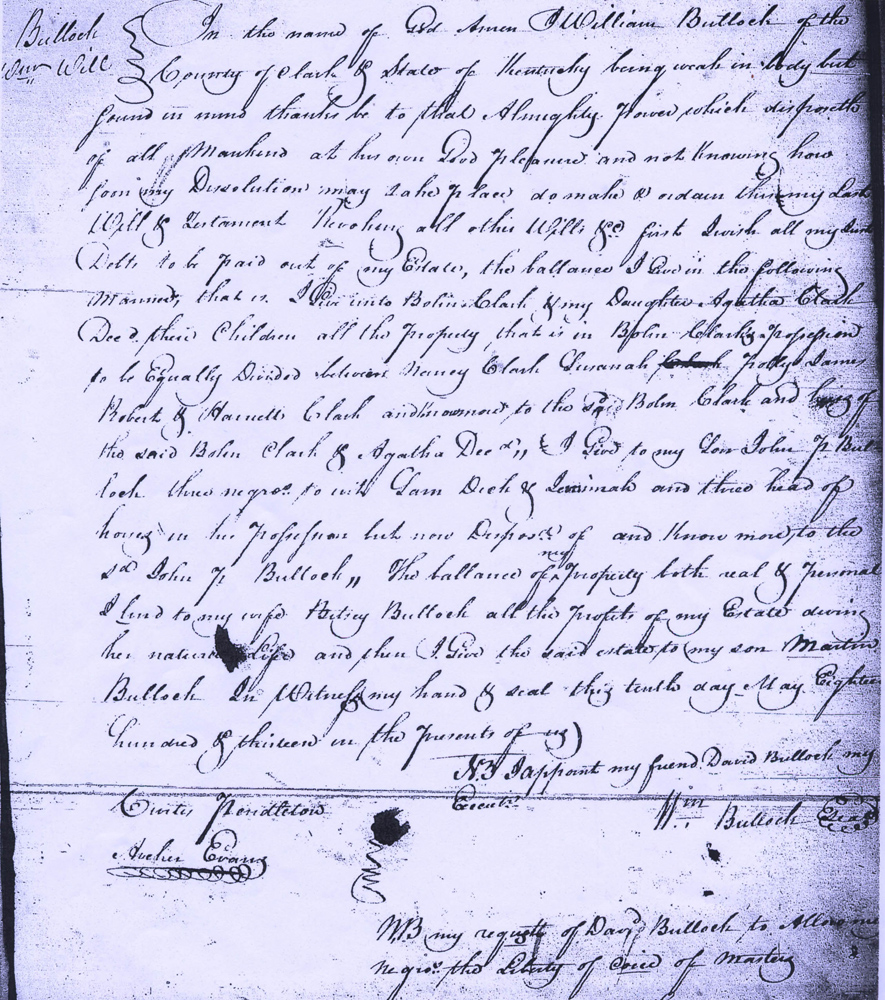 Bullock
Will
In the name of God Amen I William Bullock of the
County of Clark & State of Kentucky being weak in body but
sound in mind thanks be to that Almighty Power which disposeth
of all Mankind at his own Good Pleasure and not knowing how
soon my Dissolution may take place do make & ordain this my Last
Will & Testament Revoking all other Wills &c. first I wish all my Just
Debts to be paid out of my Estate, the ballance I Give in the following
Manner, that is. I Give unto Bolin Clark & my Daughter Agatha Clark
Decd. their Children all the Property that is in Bolin Clarks Possession
to be Equally Divided between Nancy Clark Susanah Polly James
Robert & Harriett Clark and know more to the sd. Bolin Clark and of
the said Bolin Clark & Agatha Decd.,, I Give to my Son John P Bul-
lock three negros. to wit Sam Dick & Jemimah and three head of
horses in his Possession but now Disposd. of and Know more, to the
sd John P Bullock,, The ballance of my Property both real & Personal
I lend to my wife Betsey Bullock all the Profits of my Estate during
her natural Life and then I Give the said estate to my son Martin
Bullock In Witness my hand & seal this tenth day May Eighteen
hundred & thirteen in the Presents of us)
NB I appoint my friend David Bullock my
Executr.
Wm. Bullock Seal
Curtis Pendleton
Archer Evans
NB my request of David Bullock to Allow me
negros. the Liberty of of Masters